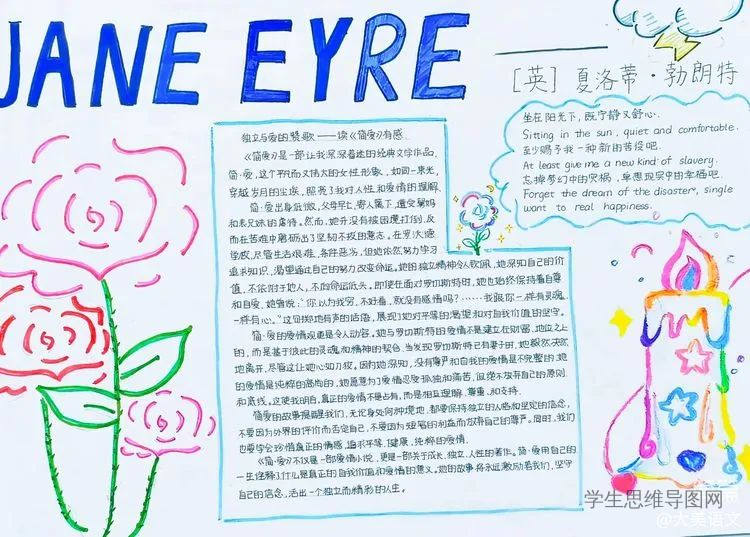 JANE EYRE
[英] 夏洛蒂·勃朗特
坐在阳光下,既宁静又舒心.
Sitting in the sun, quiet and comfortable.
至少赐予我一种新的苦役吧.
At least give me a new kind of slavery.
忘掉梦幻中的灾祸,单想现实中的幸福吧.
Forget the dream of the disaster", single
want to real happiness.
独立与爱的赞歌——读《简爱》有感.
《简爱》是一部让我深深着迷的经典文学作品,
简·爱,这个平凡而又伟大的女性形象,如同一束光,
穿越岁月的尘埃,照亮了我对人性和爱情的理解.
简·爱出身低微,父母早亡,寄人篱下,遭受舅妈
和表兄妹的虐待。然而,她并没有被困境打倒,反
而在苦难中磨砺出了坚韧不拔的意志。在罗沃德
学校,尽管生活艰难,条件恶劣,但她依然努力学习
追求知识,渴望通过自己的努力改变命运。她的独立精神令人钦佩,她深知自己的价
值,不依附于他人,不向命运低头。即使在面对罗切斯特时,她也始终保持着自尊
和自爱。她曾说:"你以为我穷,不好看,就没有感情吗?……我跟你一样有灵魂,
一样有心。"这句掷地有声的话语,展现了她对平等的渴望和对自我价值的坚守。
简·爱的爱情观更是令人动容。她与罗切斯特的爱情不是建立在财富、地位之上
的,而是基于彼此的灵魂和精神的契合。当发现罗切斯特已有妻子时,她毅然决然
地离开,尽管这让她心如刀绞。因为她深知,没有尊严和自我的爱情是不完整的。她
的爱情是纯粹的、高尚的,她愿意为了爱情忍受孤独和痛苦,但绝不放弃自己的原则
和底线。这使我明白,真正的爱情不是占有,而是相互理解、尊重、和支持.
简爱的故事提醒我们,无论身处何种境地,都要保持独立的人格和坚定的信念,
不要因为外界的评价而否定自己,不要因为短暂的利益而放弃自己的尊严。同时,我们
也要学会珍惜真正的情感,追求平等、健康、纯粹的爱情.
《简·爱》不仅是一部爱情小说,更是一部关于成长、独立、人性的著作。简·爱用自己的
一生诠释了什么是真正的自我价值和爱情的意义。她的故事将永远激励着我们,坚守
自己的信念,活出一个独立而精彩的人生。
学生思维导图网
@大美语文